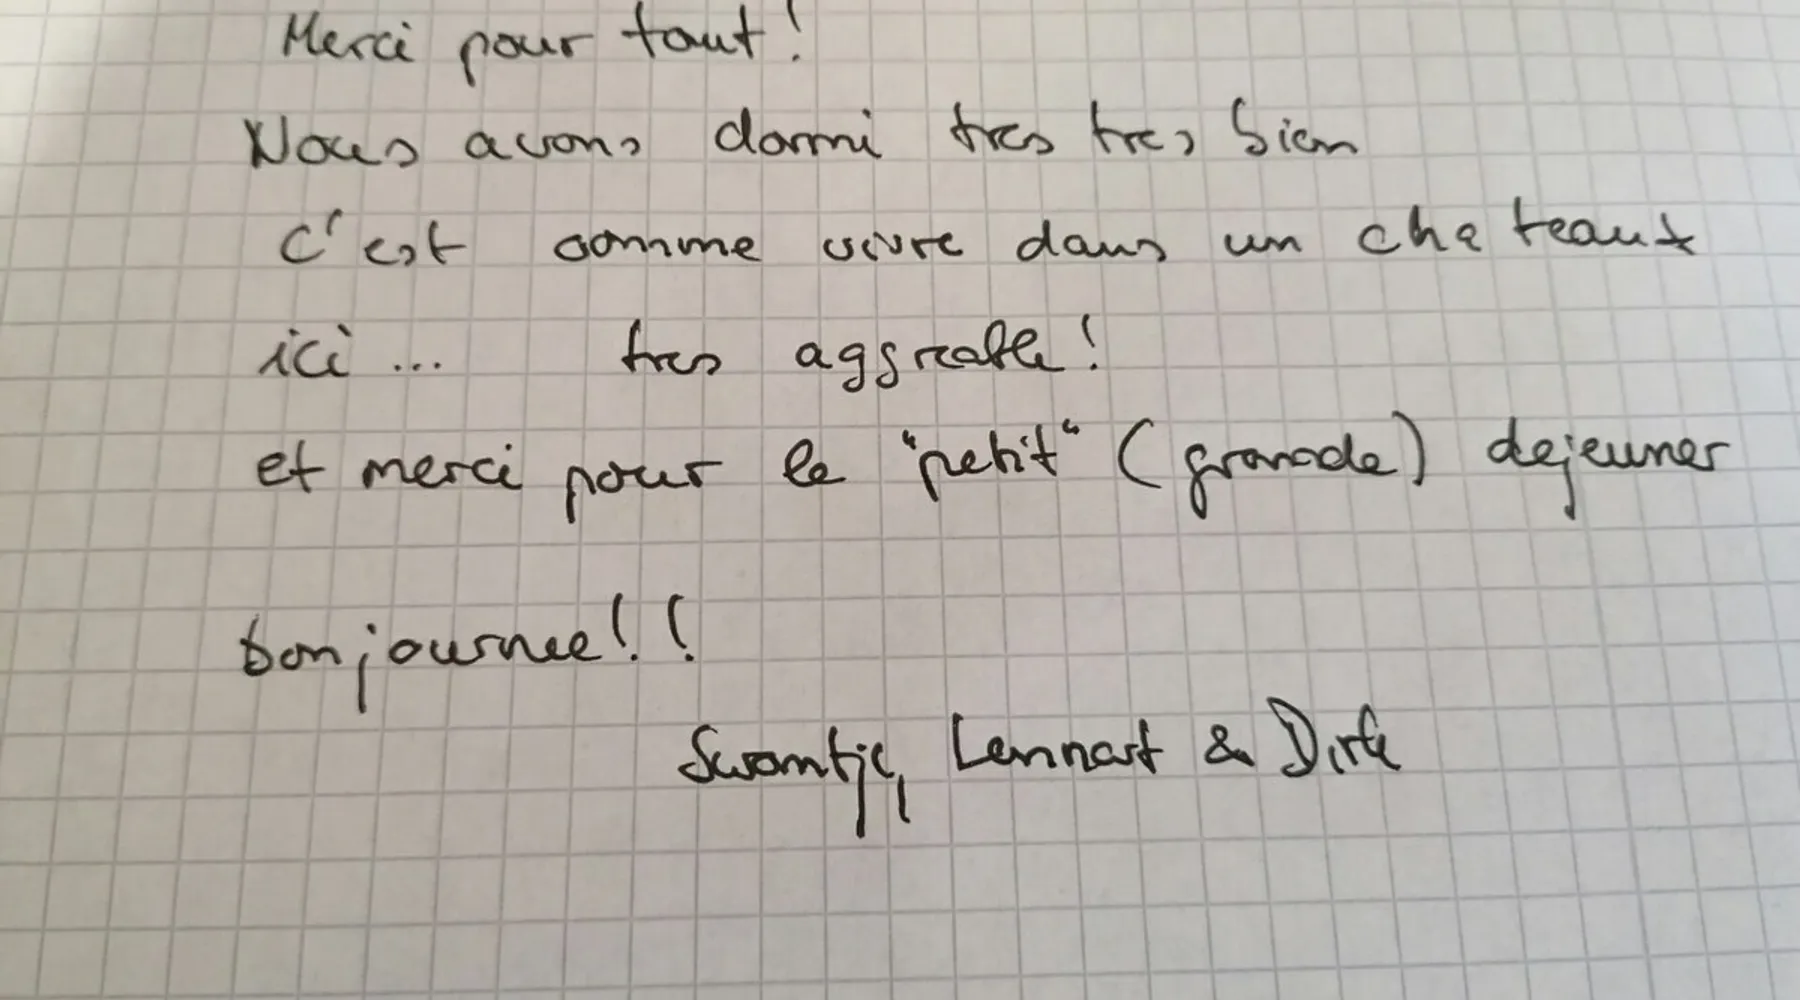 Merci pour tout!
Nous avons dormi tres tres bien
c'est comme vivre dans un chateaux
ici ... tres aggreable!
et merci pour le "petit" (grande) dejeuner
bon journee!!
Swantje, Lennart & Dirk